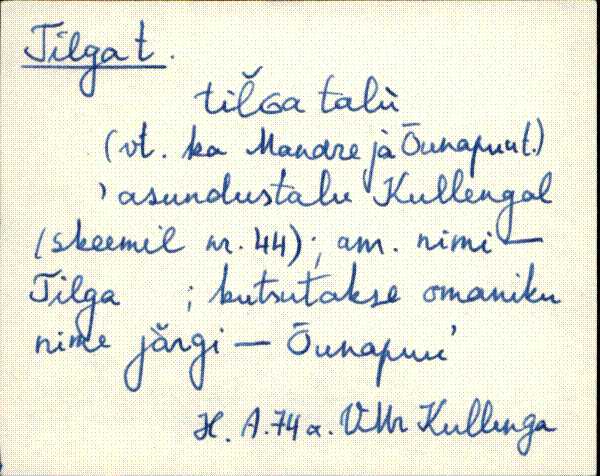 Tilga t.
tiĺGa talù
(vt. ka Mandre ja Õunapuu t.)
'asundustalu Kullengal
(skeemil nr. 44); am. nimi —
Tilga ; kutsutakse omaniku
nime järgi — Õunapuu'
H. A. 74 a. VMr Kullenga